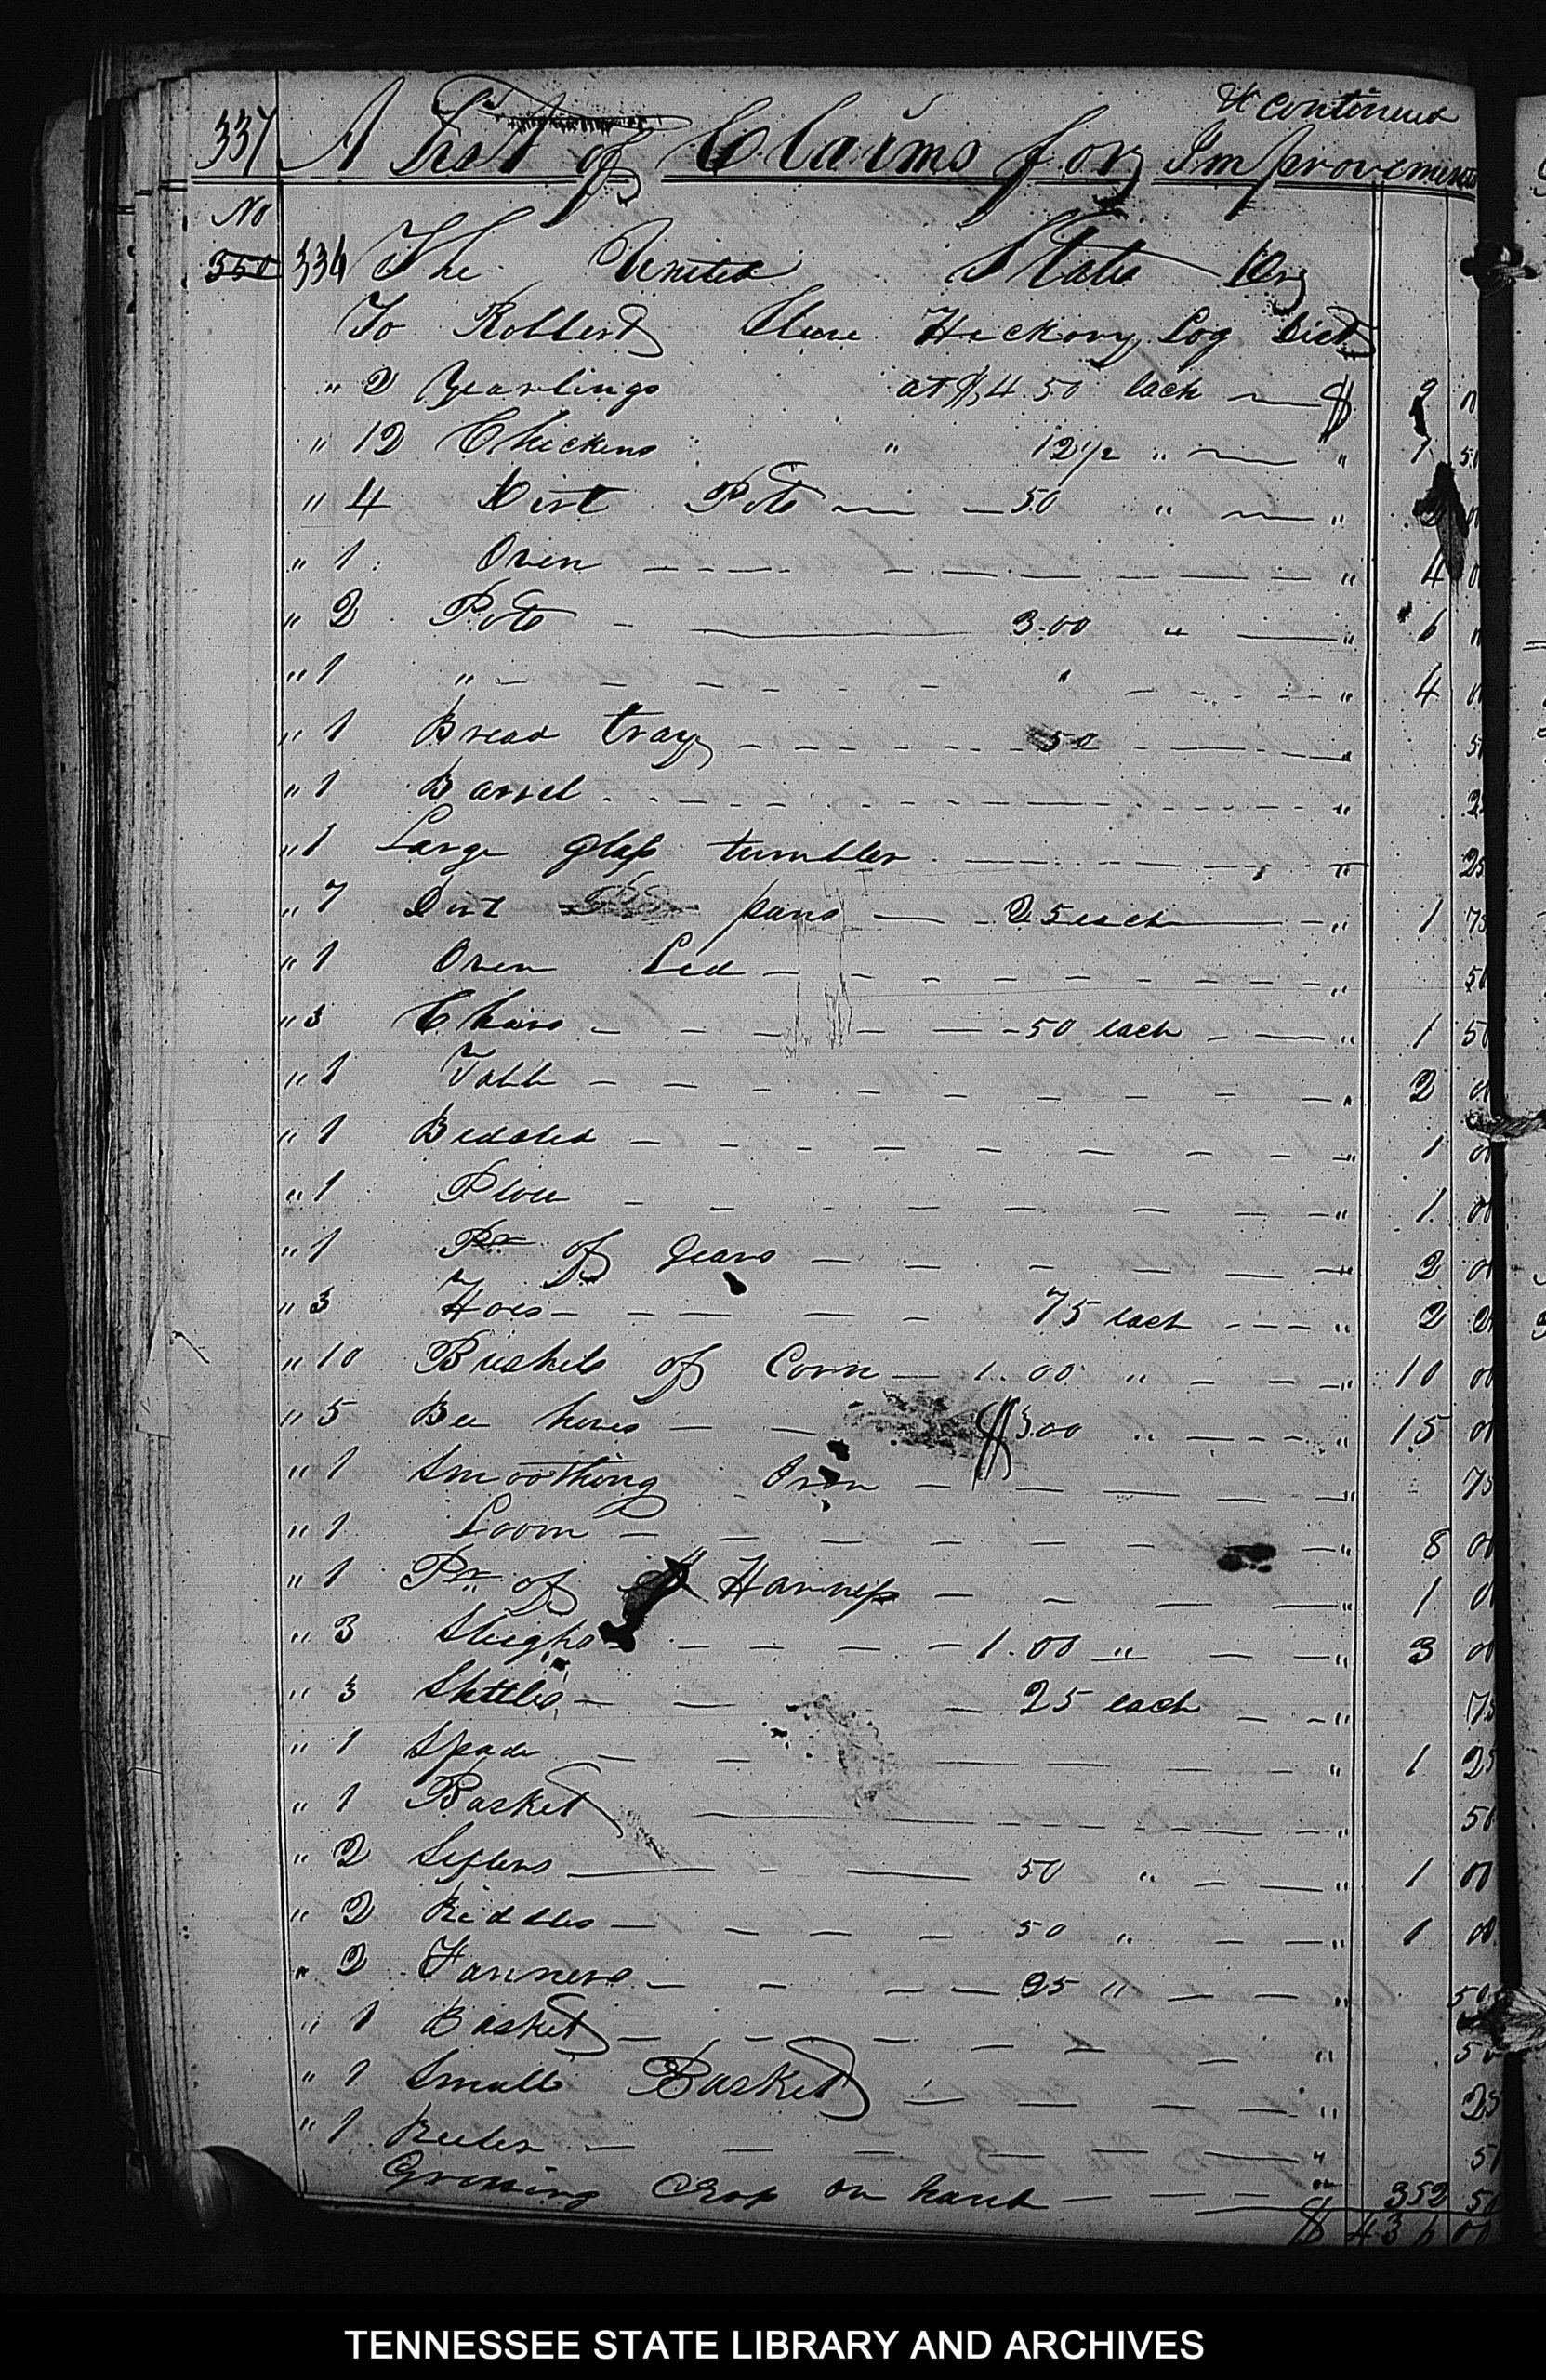 & Continued
337 A List of Claims for Improvements
No
350 336 The United States Dr
To Robbert Hickory Log Dist
" 2 Yearlings at $4.50 each $ 9 00
" 12 Chickens " 12 1/2 " " 1 50
" 4 Dirt Pots 50 " " 2 00
" 1 Oven " 4 00
" 2 Pots 3.00 " " 6 00
" 1 " " " 4 00
" 1 Bread tray 50 " 50
" 1 Barrel " 25
" 1 Large glass tumbler " 25
" 7 Dirt pans 25 each " 1 75
" 1 Oven Led " 50
" 3 Chairs 50 each " 1 50
" 1 Table " 2 00
" 1 Bedsted " 1 00
" 1 Plow " 1 00
" 1 Pr of Gears " 2 00
" 3 Hoes 75 each " 2 25
" 10 Bushels of Corn 1.00 " " 10 00
" 5 Bee hives $3.00 " " 15 00
" 1 Smoothing Iron " 75
" 1 Loom " 8 00
" 1 Pr of Harness " 1 00
" 3 Sleighs 1.00 " " 3 00
" 3 Shttles 25 each " 75
" 1 Spade " 1 25
" 1 Basket " 50
" 2 Sifters 50 " " 1 00
" 2 Riddles 50 " " 1 00
" 2 Fanners 25 " " 50
" 1 Basket " 50
" 1 Small Basket " 25
" 1 Reeler " 50
Growing Crop on hand " 352 50
$ 436 00
TENNESSEE STATE LIBRARY AND ARCHIVES